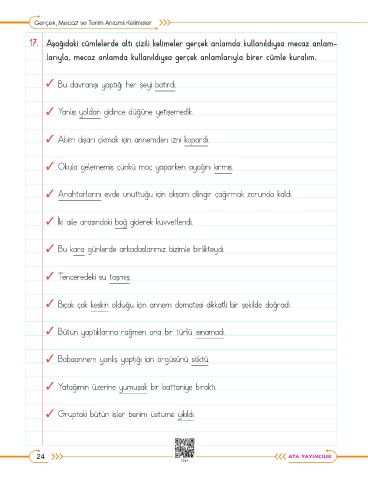 Gerçek, Mecaz ve Terim Anlamlı Kelimeler
17. Aşağıdaki cümlelerde altı çizili kelimeler gerçek anlamda kullanıldıysa mecaz anlam-
larıyla, mecaz anlamda kullanıldıysa gerçek anlamlarıyla birer cümle kuralım.
✓ Bu davranışı yaptığı her şeyi batırdı.
✓ Yanlış yoldan gidince düğüne yetişemedik.
✓ Abim dışarı çıkmak için annemden izni kopardı.
✓ Okula gelememiş çünkü maç yaparken ayağını kırmış.
✓ Anahtarlarını evde unuttuğu için akşam çilingir çağırmak zorunda kaldı.
✓ İki aile arasındaki bağ giderek kuvvetlendi.
✓ Bu kara günlerde arkadaşlarımız bizimle birlikteydi.
✓ Tenceredeki su taşmış.
✓ Bıçak çok keskin olduğu için annem domatesi dikkatli bir şekilde doğradı.
✓ Bütün yaptıklarına rağmen ona bir türlü ısınamadı.
✓ Babaannem yanlış yaptığı için örgüsünü söktü.
✓ Yatağımın üzerine yumuşak bir battaniye bıraktı.
✓ Gruptaki bütün işler benim üstüme yıkıldı.
24
ATA YAYINCILIK